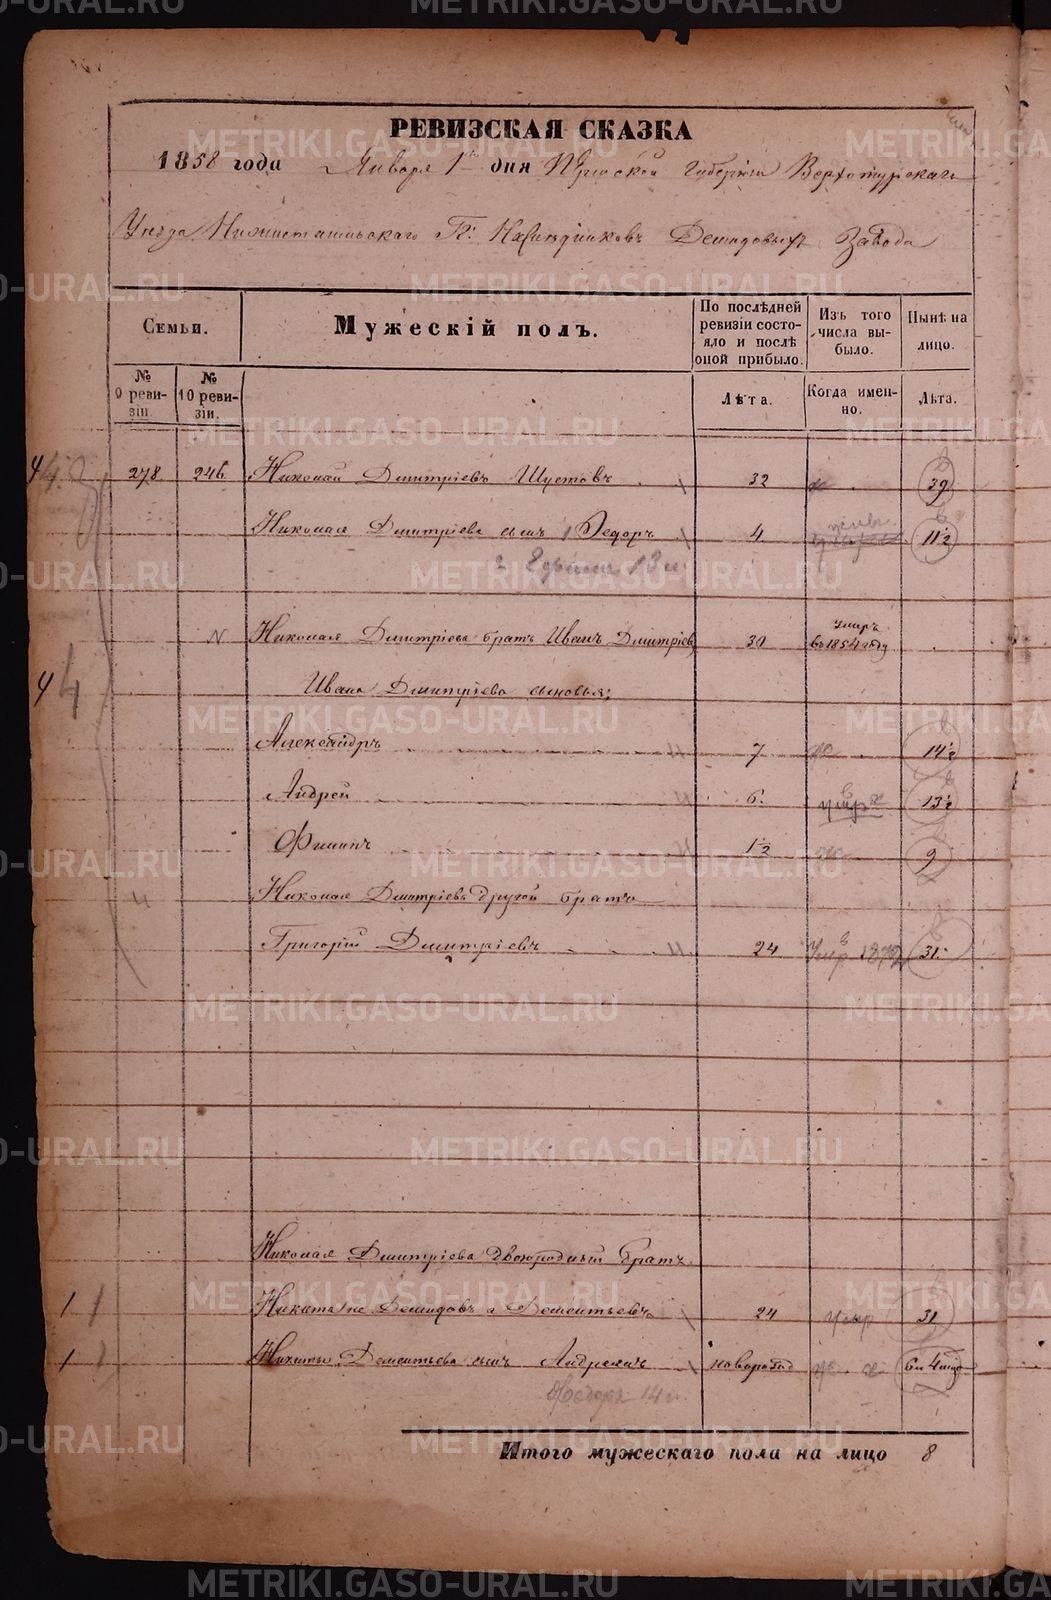 РЕВИЗСКАЯ СКАЗКА
1858 года Января 1 дня Пермской Губернии Верхотурскаго
Уезда Нижнетагильскаго Г: Наследников Демидовых Завода
Семьи.
Мужескій полъ.
По послѣдней ревизіи состояло и послѣ оной прибыло.
Изъ того числа выбыло.
Нынѣ на лицо.
№ 9 ревизіи.
№ 10 ревизіи.
Лѣта.
Когда именно.
Лѣта.
4 278 246 Николай Дмитріевъ Шустовъ 32 39
Николая Дмитріева сынъ Федоръ 4 11½
Николая Дмитріева братъ Иванъ Дмитріевъ 30 Умеръ въ 1854 году
4 Ивана Дмитріева сыновья:
Александръ 7 14½
Андрей 6 13½
Филипъ 1½ 9
4 Николая Дмитріева другой братъ
Григорій Дмитріевъ 24 31
Николая Дмитріева двоюродный братъ
1 1 Никита не Демидовъ а Дементьевъ 24 умер 31
1 1 Никиты Дементьева сынъ Андреянъ новорожд
Федоръ 14
Итого мужескаго пола на лицо 8
METRIKI.GASO-URAL.RU